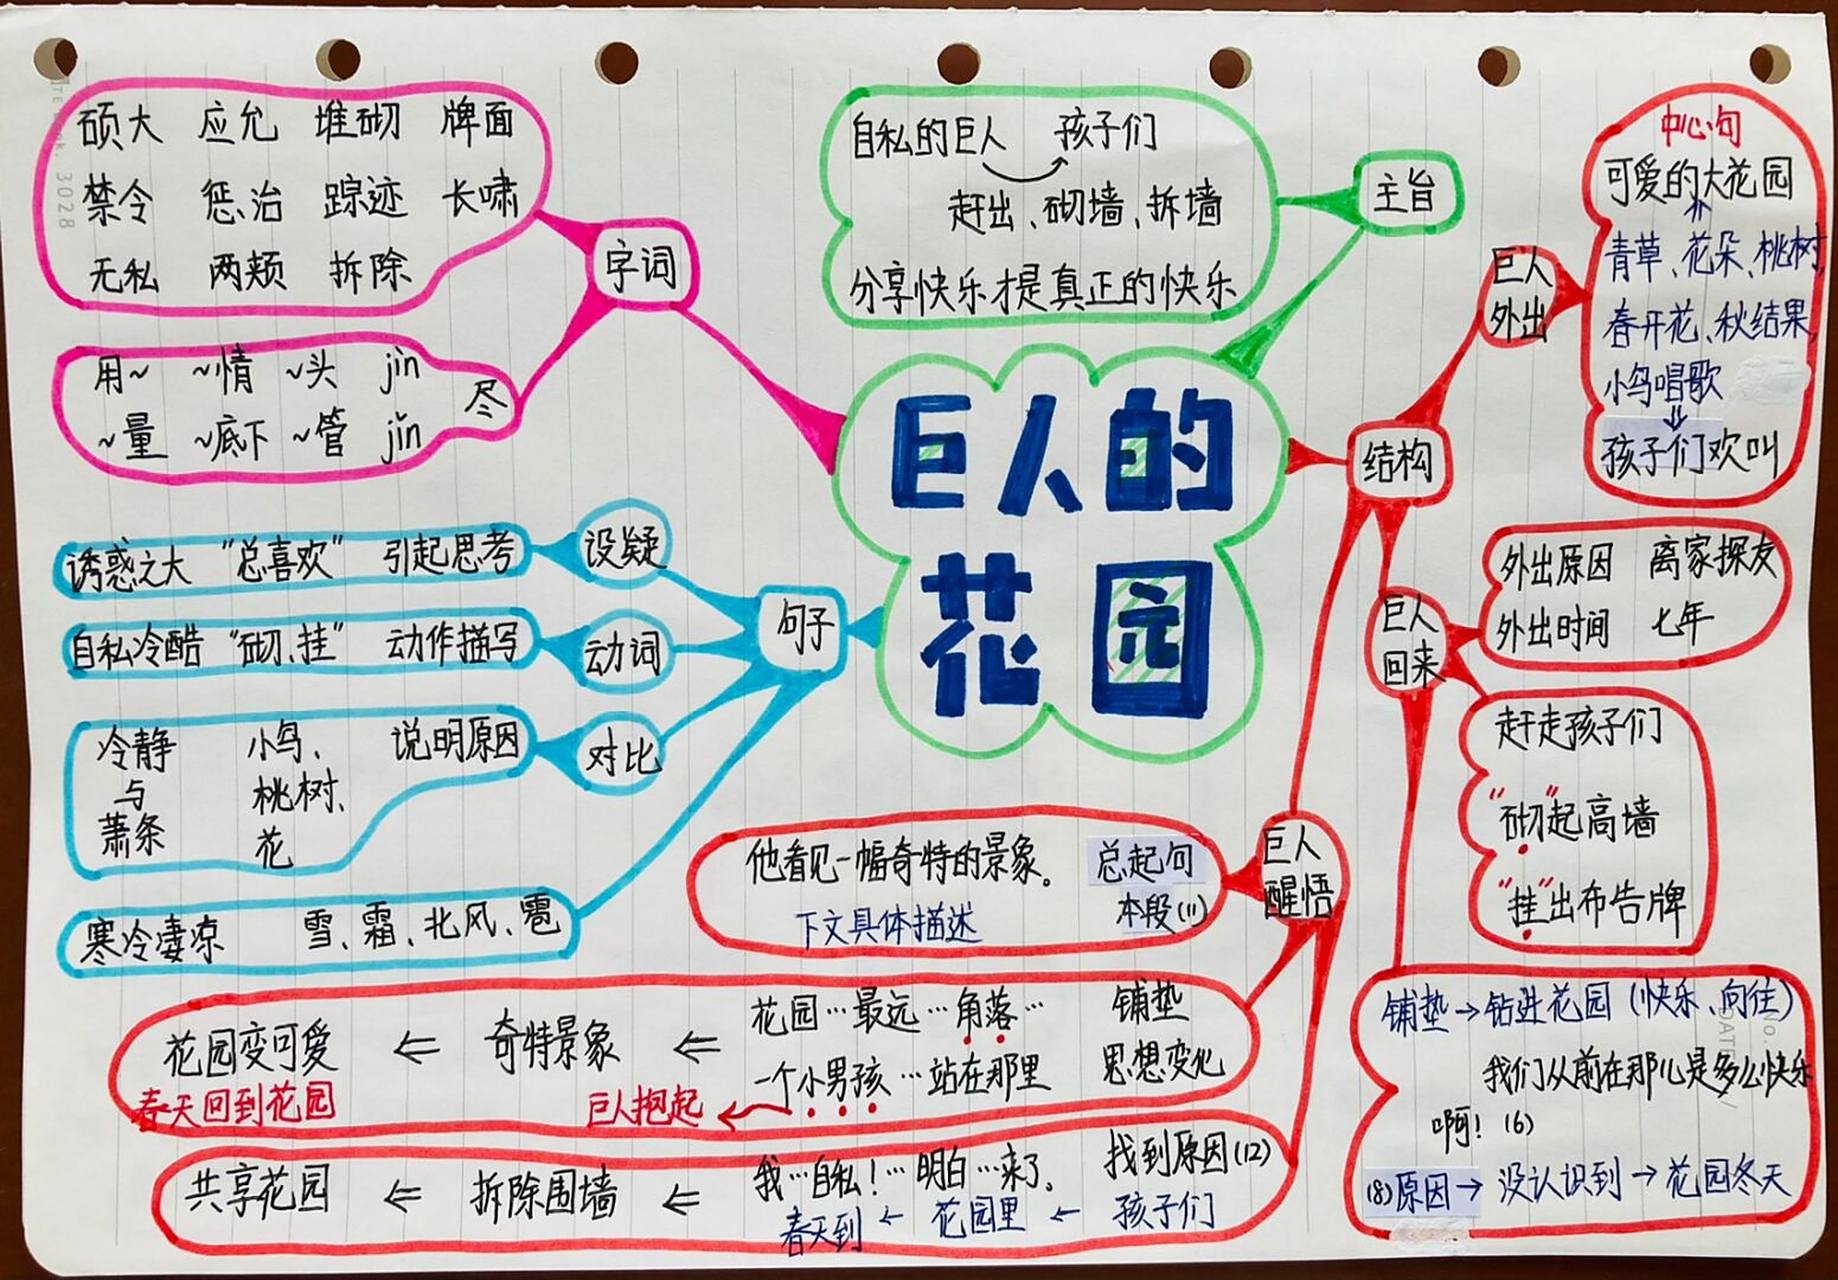 巨人的
花园
字词
硕大 应允 堆砌 牌面
禁令 惩治 踪迹 长啸
无私 两颊 拆除
尽
用~ ~情 ~头 jìn
~量 ~底下 ~管 jǐn
主旨
自私的巨人 孩子们
赶出、砌墙、拆墙
分享快乐才是真正的快乐
句子
设疑
诱惑之大 “总喜欢” 引起思考
动词
自私冷酷 “砌、挂” 动作描写
对比
冷静 小鸟、 说明原因
与 桃树、
萧条 花
寒冷凄凉 雪、霜、北风、雹
结构
巨人
外出
中心句
可爱的大花园
青草、花朵、桃树,
春开花、秋结果,
小鸟唱歌
⇓
孩子们欢叫
巨人
回来
外出原因 离家探友
外出时间 七年
赶走孩子们
“砌”起高墙
“挂”出布告牌
铺垫→钻进花园(快乐、向往)
我们从前在那儿是多么快乐
啊! (6)
(8)原因→没认识到→花园冬天
巨人
醒悟
他看见一幅奇特的景象。 总起句
下文具体描述 本段(11)
花园…最远…角落… 铺垫
花园变可爱 ⇐ 奇特景象 ⇐
一个小男孩…站在那里 思想变化
春天回到花园 巨人抱起 ←
我…自私!…明白…来了。 找到原因(12)
共享花园 ⇐ 拆除围墙 ⇐
春天到 ← 花园里 ← 孩子们
3028
No.
DATE